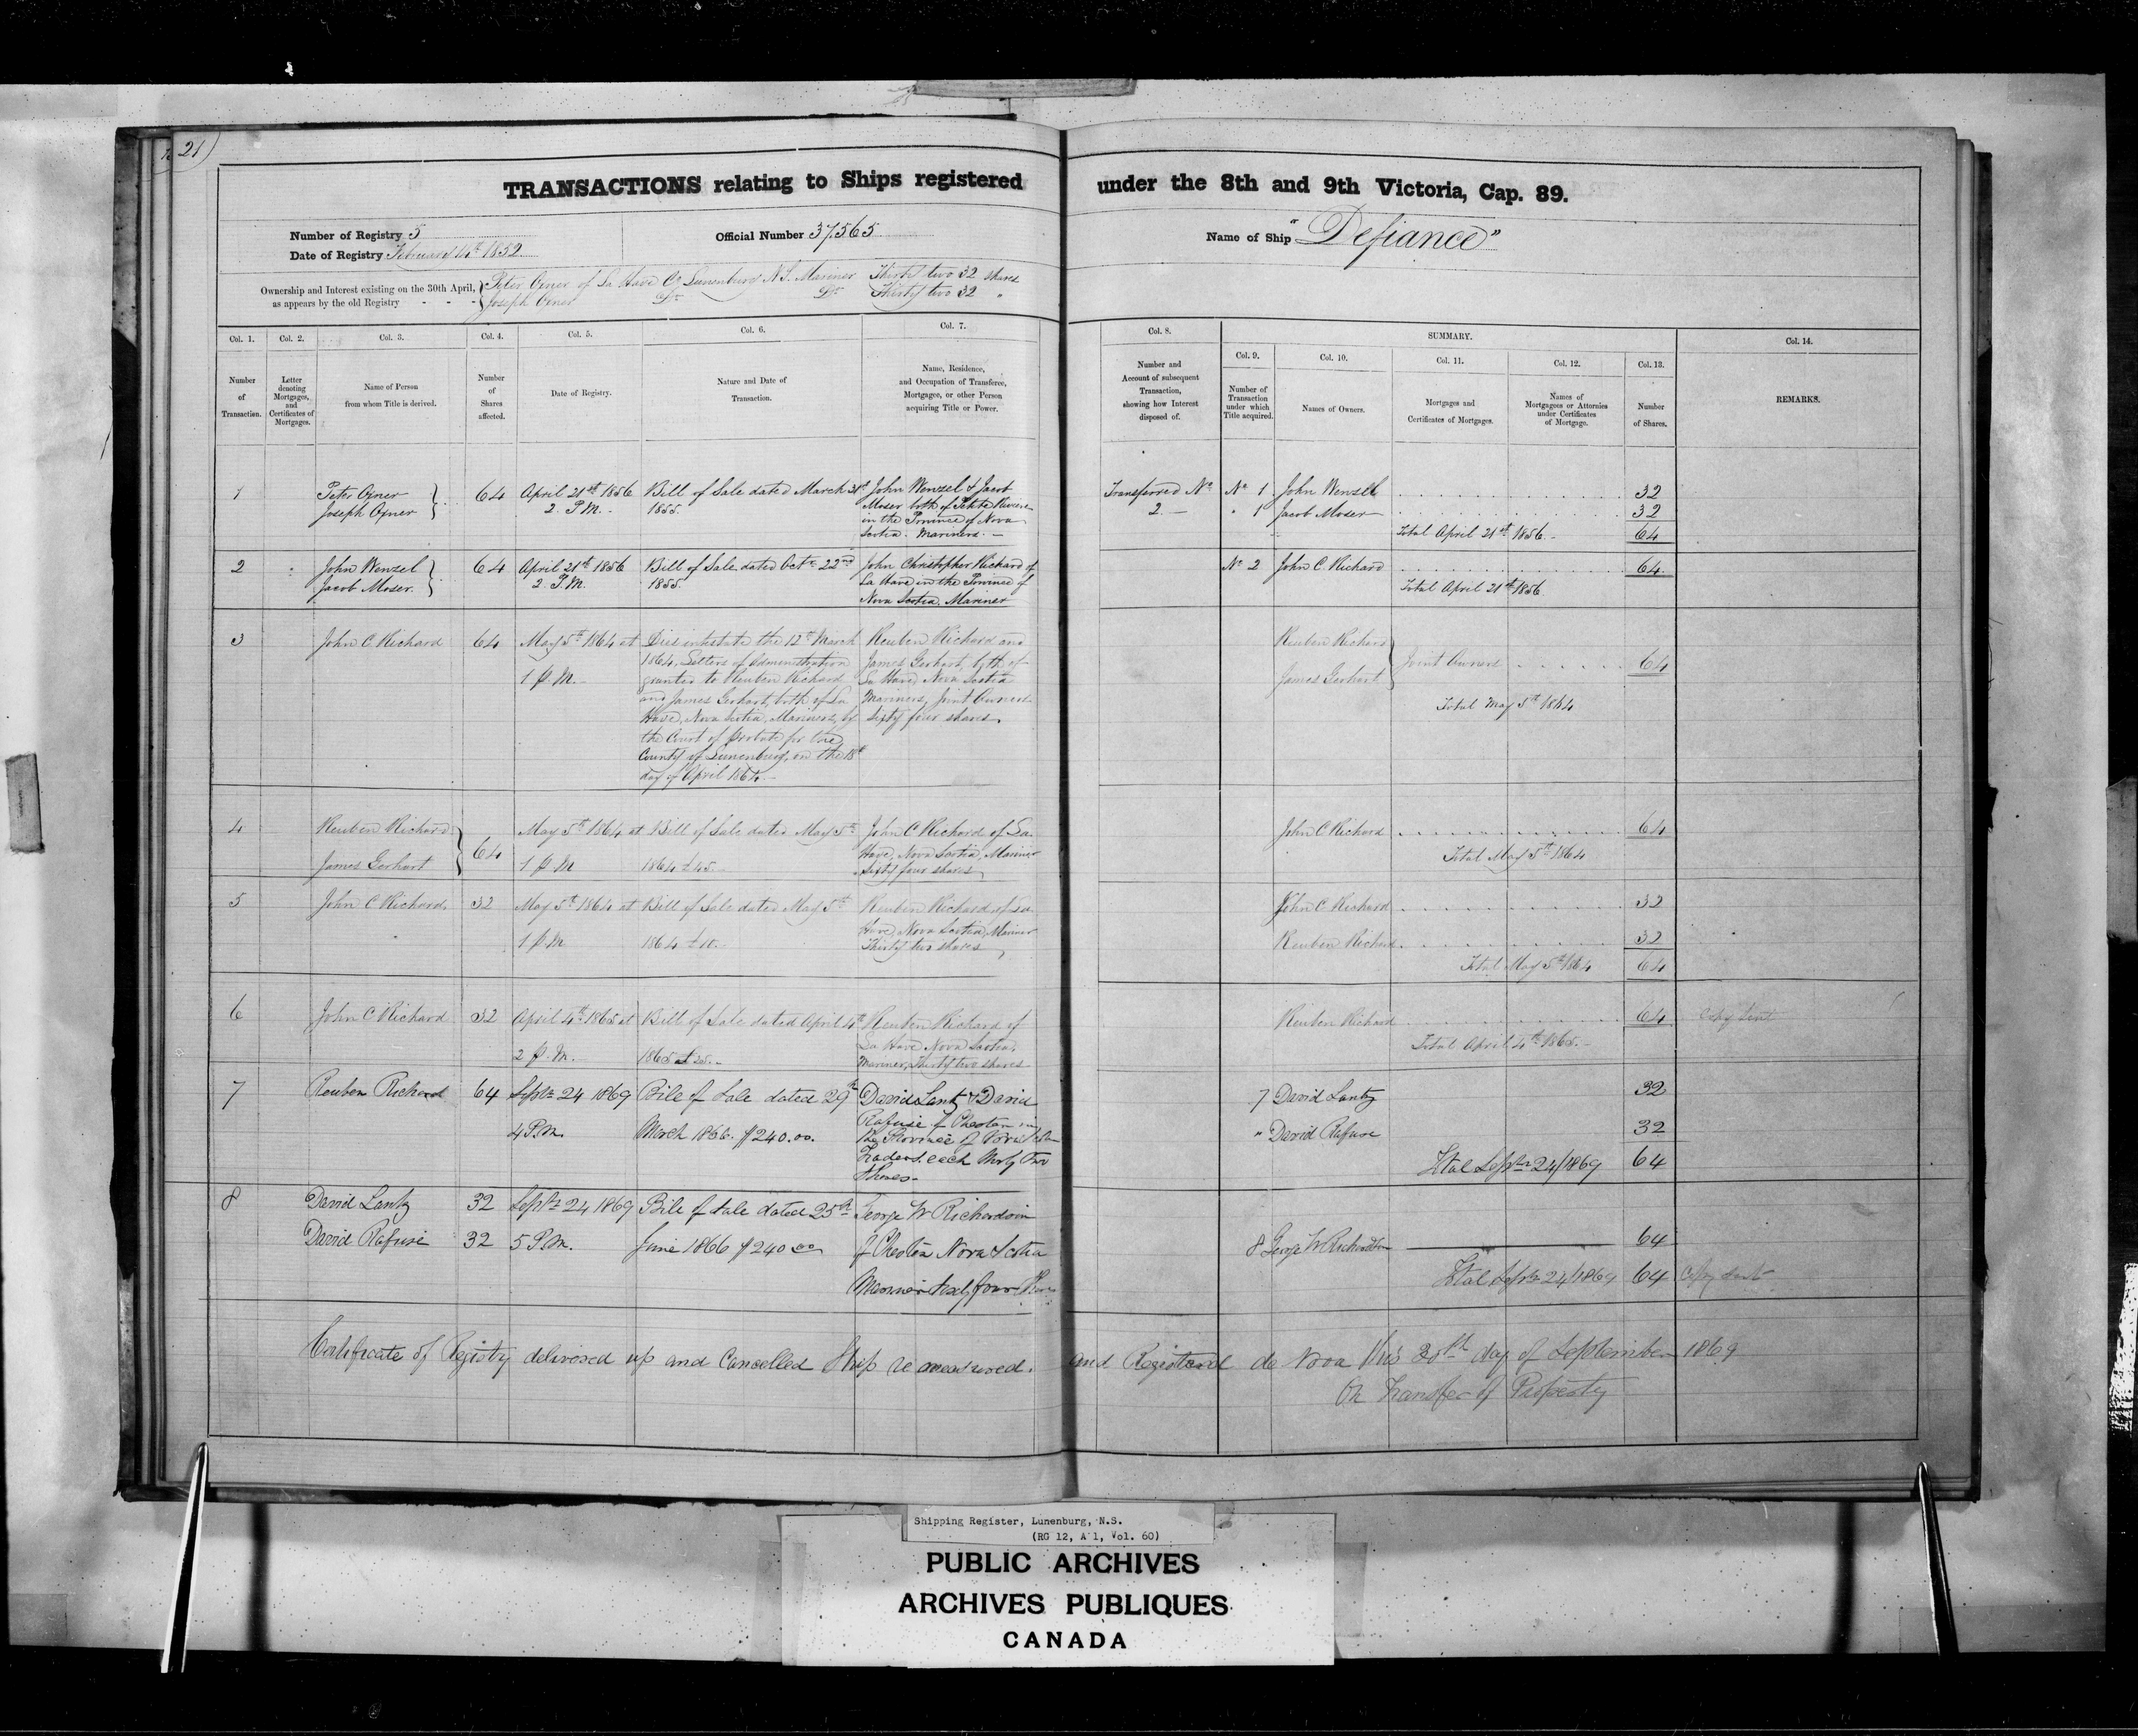 21
TRANSACTIONS relating to Ships registered under the 8th and 9th Victoria, Cap. 89.
Number of Registry 5
Official Number 37,565
Name of Ship "Defiance"
Date of Registry February 4th 1852
Ownership and Interest existing on the 30th April, as appears by the old Registry - - -
Peter Oxner of La Have Co Lunenburg N.S. Mariner Thirty two 32 shares
Joseph Oxner Do Do Thirty two 32 "
Col. 1. Col. 2. Col. 3. Col. 4. Col. 5. Col. 6. Col. 7. Col. 8. SUMMARY. Col. 14.
Col. 9. Col. 10. Col. 11. Col. 12. Col. 13.
Number of Transaction.
Letter denoting Mortgages, and Certificates of Mortgages.
Name of Person from whom Title is derived.
Number of Shares affected.
Date of Registry.
Nature and Date of Transaction.
Name, Residence, and Occupation of Transferee, Mortgagee, or other Person acquiring Title or Power.
Number and Account of subsequent Transaction, showing how Interest disposed of.
Number of Transaction under which Title acquired.
Names of Owners.
Mortgages and Certificates of Mortgages.
Names of Mortgagees or Attornies under Certificates of Mortgage.
Number of Shares.
REMARKS.
1
Peter Oxner
Joseph Oxner
64
April 21st 1856
2. P.M.
Bill of Sale dated March 31st
1855.
John Wenzel & Jacob
Moser both of Petite Riviere
in the Province of Nova
Scotia. Mariners. —
Transferred No
2. —
No 1 John Wenzel 32
" 1 Jacob Moser 32
Total April 21st 1856. 64
2
John Wenzel
Jacob Moser.
64
April 21st 1856
2 P.M.
Bill of Sale dated Octr 22nd
1855.
John Christopher Richard of
La Have in the Province of
Nova Scotia. Mariner
No 2 John C. Richard 64.
Total April 21st 1856.
3
John C Richard
64
May 5th 1864 at
1 P.M.
Dies intestate the 12th March
1864, Letters of Administration
granted to Reuben Richard
and James Gerhart, both of La
Have, Nova Scotia, Mariners, by
the Court of Probate for the
County of Lunenburg, on the 18th
day of April 1864.
Reuben Richard and
James Gerhart, both of
La Have Nova Scotia
Mariners, Joint Owners
Sixty four shares
Reuben Richard
James Gerhart
Joint Owners 64
Total May 5th 1864
4
Reuben Richard
James Gerhart
64
May 5th 1864 at
1 P.M
Bill of Sale dated May 5th
1864 £45.
John C Richard, of La
Have, Nova Scotia, Mariner
Sixty four shares
John C Richard 64
Total May 5th 1864
5
John C Richard
32
May 5th 1864 at
1 P.M
Bill of Sale dated May 5th
1864 £10.
Reuben Richard, of La
Have, Nova Scotia, Mariner
Thirty two shares
John C Richard 32
Reuben Richard 32
Total May 5th 1864 64
6
John C Richard
32
April 4th 1865 at
2 P.M.
Bill of Sale dated April 4th
1865 £25.
Reuben Richard of
La Have Nova Scotia,
Mariner, Thirty two shares
Reuben Richard 64
Total April 4th 1865.
Copy sent
7
Reuben Richard
64
Septr 24 1869
4 P.M.
Bill of Sale dated 29th
March 1866. $240.00.
David Lantz & David
Rafuse of Chester in
the Province of Nova Scotia
Traders. each thirty two
Shares.
7 David Lantz 32
" David Rafuse 32
Total Septr 24/1869 64
8
David Lantz 32
David Rafuse 32
Septr 24 1869
5 P.M.
Bill of Sale dated 25th
June 1866 $240.00
George W Richardson
of Chester Nova Scotia
Mariner Sixty four Shares
8 George W Richardson 64
Total Septr 24/1869 64
Copy sent
Certificate of Registry delivered up and Cancelled Ship re measured. and Registered de Nova this 30th day of September 1869
On Transfer of Property
Shipping Register, Lunenburg, N.S.
(RG 12, A 1, Vol. 60)
PUBLIC ARCHIVES
ARCHIVES PUBLIQUES
CANADA